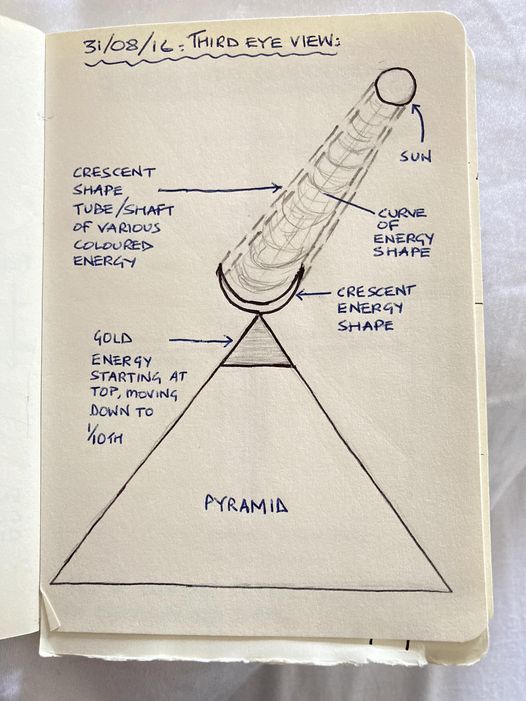 31/08/16: THIRD EYE VIEW:
SUN
CRESCENT
SHAPE
TUBE/SHAFT
OF VARIOUS
COLOURED
ENERGY
CURVE
OF
ENERGY
SHAPE
CRESCENT
ENERGY
SHAPE
GOLD
ENERGY
STARTING AT
TOP, MOVING
DOWN TO
1/10TH
PYRAMID